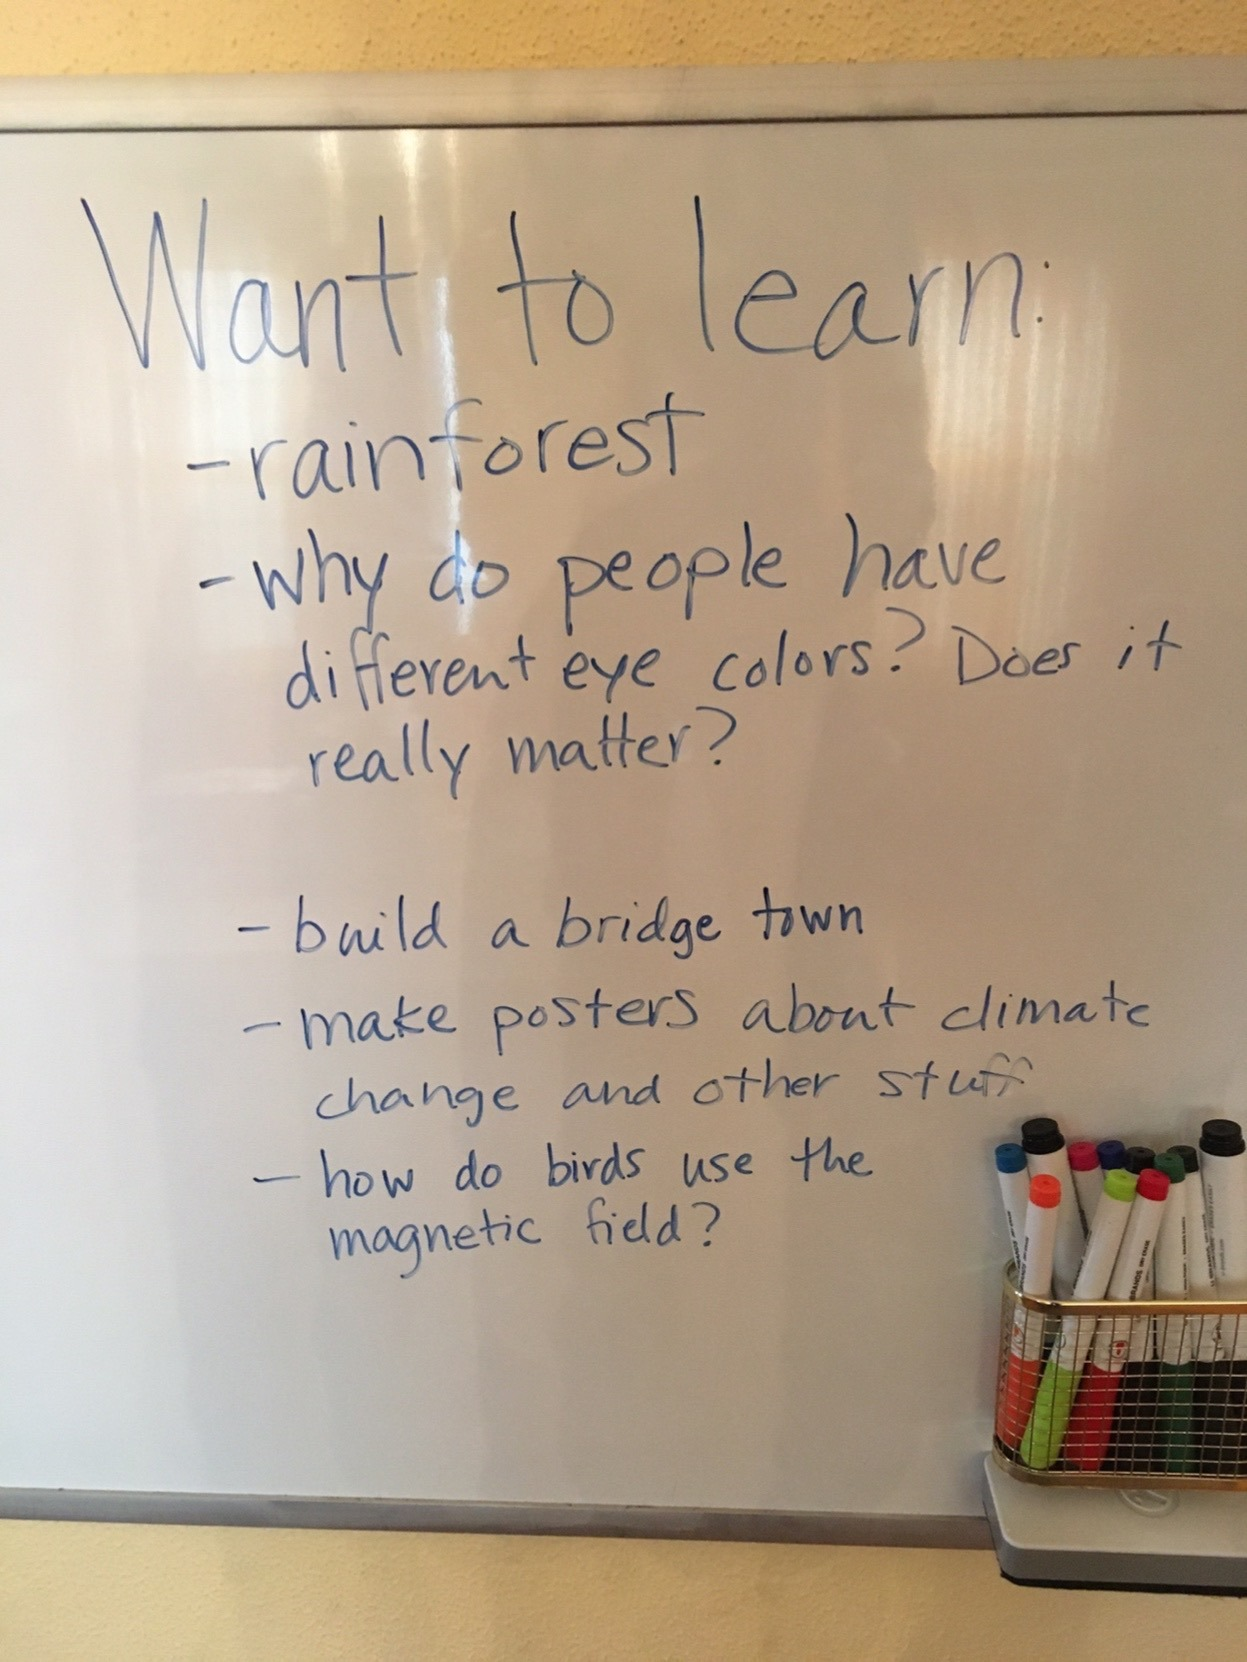 Want to learn:
- rainforest
- why do people have
different eye colors? Does it
really matter?
- build a bridge town
- make posters about climate
change and other stuff
- how do birds use the
magnetic field?